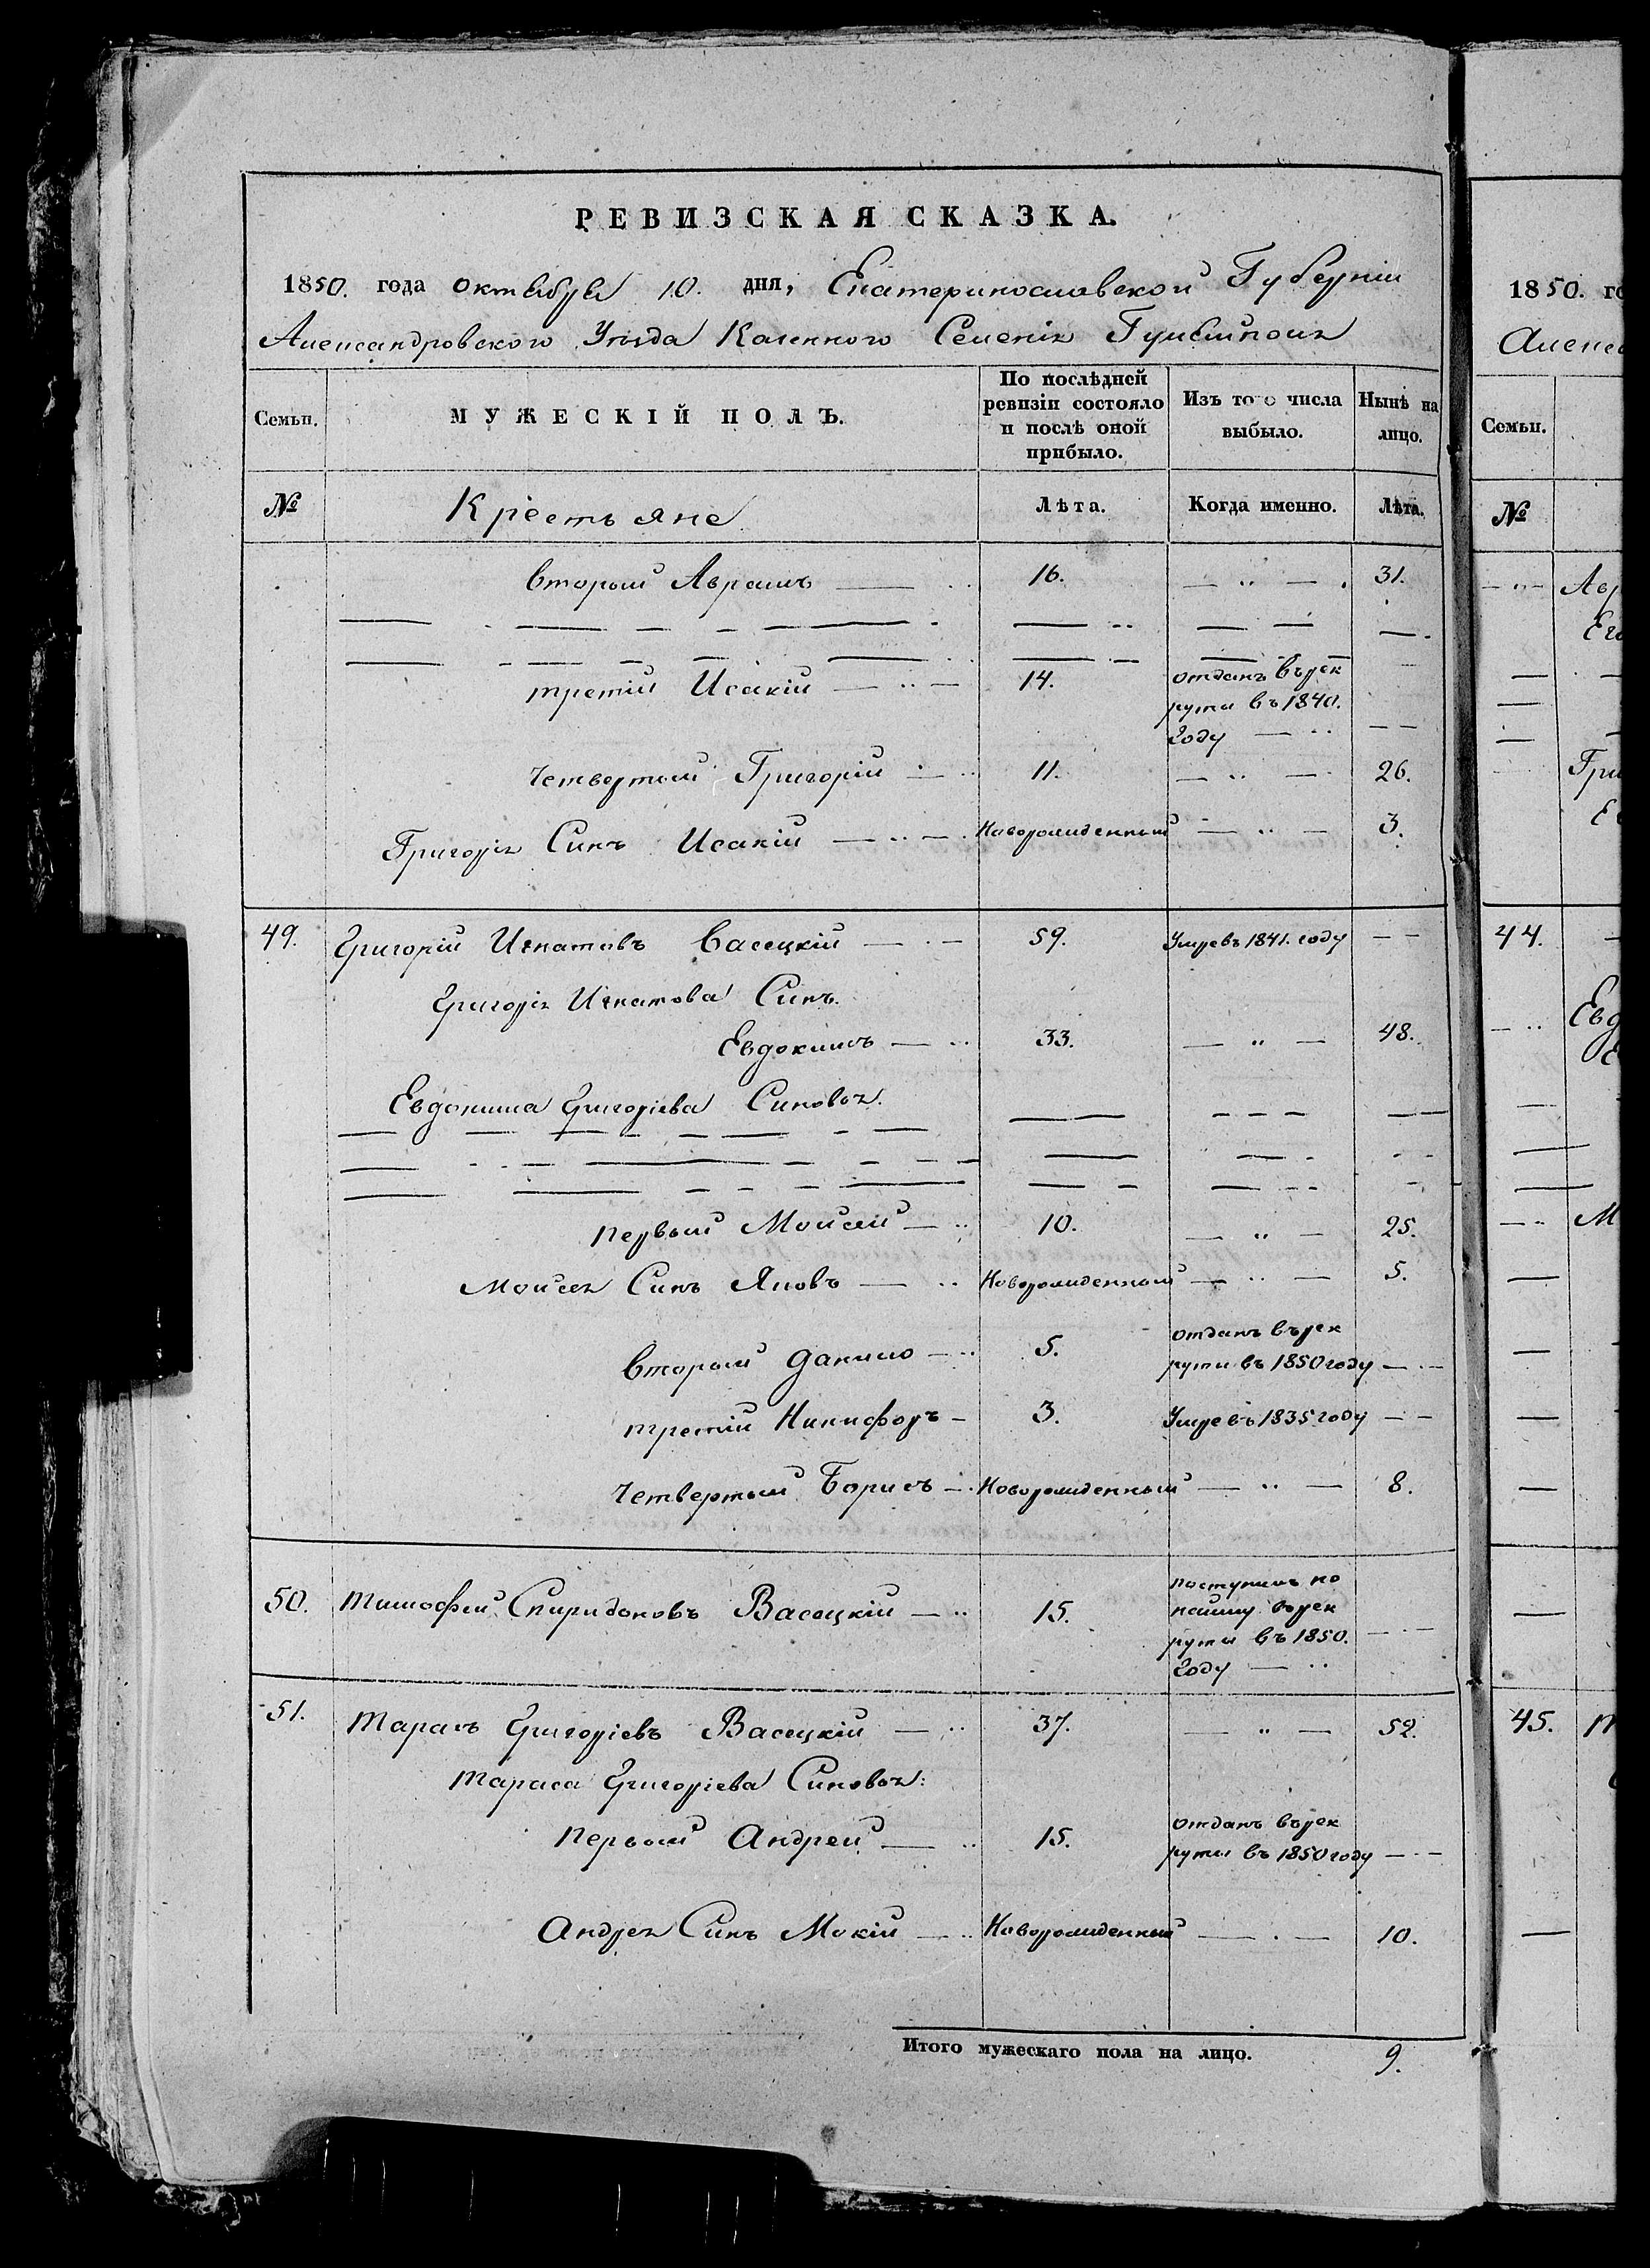 РЕВИЗСКАЯ СКАЗКА.
1850. года октября 10. дня, Екатеринославской Губерніи
Александровскаго Уѣзда Казенного Селенія
Семьи. МУЖЕСКІЙ ПОЛЪ. По послѣдней ревизіи состояло и послѣ оной прибыло. Изъ того числа выбыло. Нынѣ на лицо.
№ Крестьяне Лѣта. Когда именно. Лѣта.
Вторый Аврамъ 16. — „ — 31.
третій Исакій 14. отданъ въ рек
руты въ 1840.
году
Четвертый Григорій 11. — „ — 26.
Григорія Синъ Исакій Новорожденный — „ — 3.
49. Григорій Игнатовъ Васецкій 59. Умре въ 1841. году
Григорія Игнатова Синъ.
Евдокимъ 33. — „ — 48.
Евдокима Григоріева Синовья.
первый Моисей 10. — „ — 25.
Моисея Синъ Яковъ Новорожденный — „ — 5.
Вторый Данило 5. отданъ въ рек
руты въ 1850 году
третій Никифоръ 3. Умре въ 1835 году
Четвертый Борисъ Новорожденный — „ — 8.
50. Тимофей Спиридоновъ Васецкій 15. поступилъ по
найму в рек
руты въ 1850.
году
51. Тарасъ Григоріевъ Васецкій 37. — „ — 52.
Тараса Григоріева Синовья:
Первый Андрей 15. отданъ въ рек
руты въ 1850 году
Андрея Синъ Мокій Новорожденный 10.
Итого мужескаго пола на лицо. 9.
1850. го
Семьи.
№
44.
45.